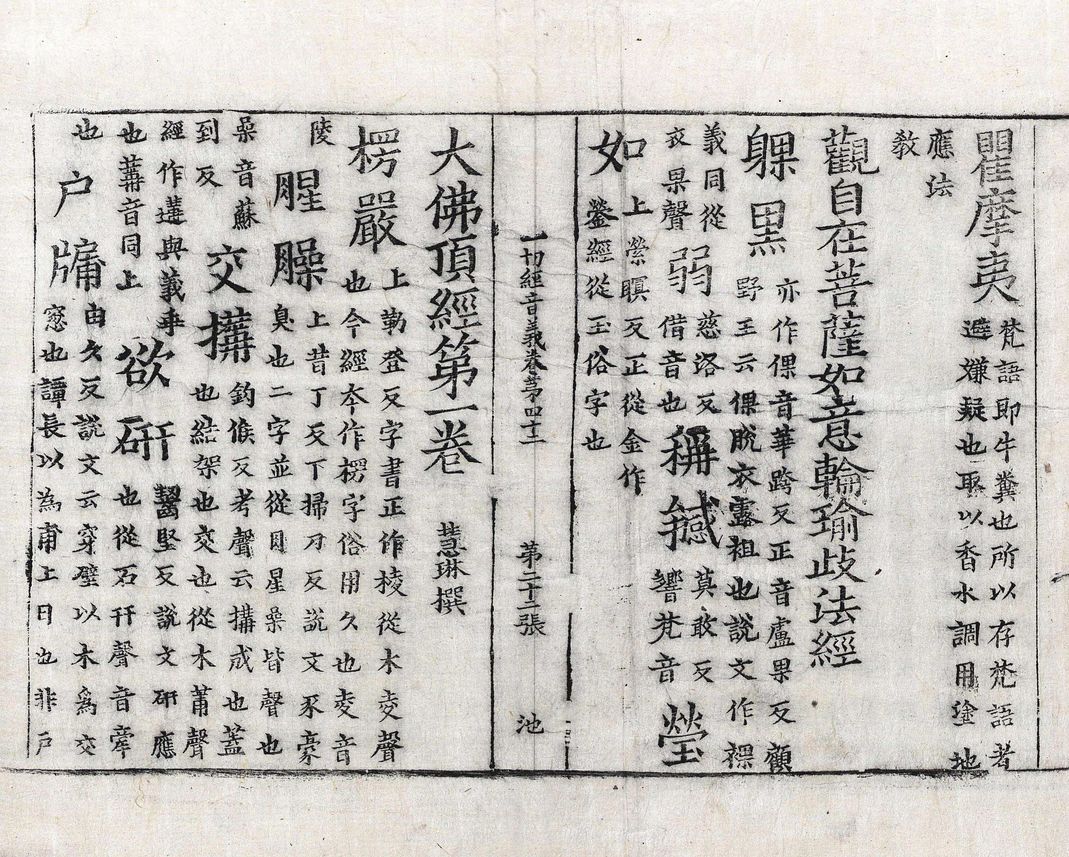 瞿摩夷
梵語即牛糞也所以存梵語者
避嫌疑也取以香水調用塗地
應法
教
觀自在菩薩如意輪瑜歧法經
躶黒
亦作倮音華跨反正音盧果反顧
野王云倮脫衣露袒也說文作裸
義同從
衣果聲
弱
慈洛反
借音也
稱
莫敢反
響梵音
瑩
如
上縈瞑反正從金作
鎣經從玉俗字也
一切經音義卷第四十二 第二十二張 池
大佛頂經第一卷 慧琳撰
楞嚴
上勒登反字書正作棱從木夌聲
也今經本作楞字俗用久也夌音
陵
腥臊
上昔丁反下掃刀反說文豕豪
臭也二字並從月星喿皆聲也
喿音蘇
到反
交搆
鈎候反考聲云搆成也蓋
也結架也交也從木冓聲
經作遘與義乖
也冓音同上
欲研
齧堅反說文研應
也從石幵聲音牽
也
户牖
由久反說文云穿壁以木爲交
窓也譚長以為甫上日也非户